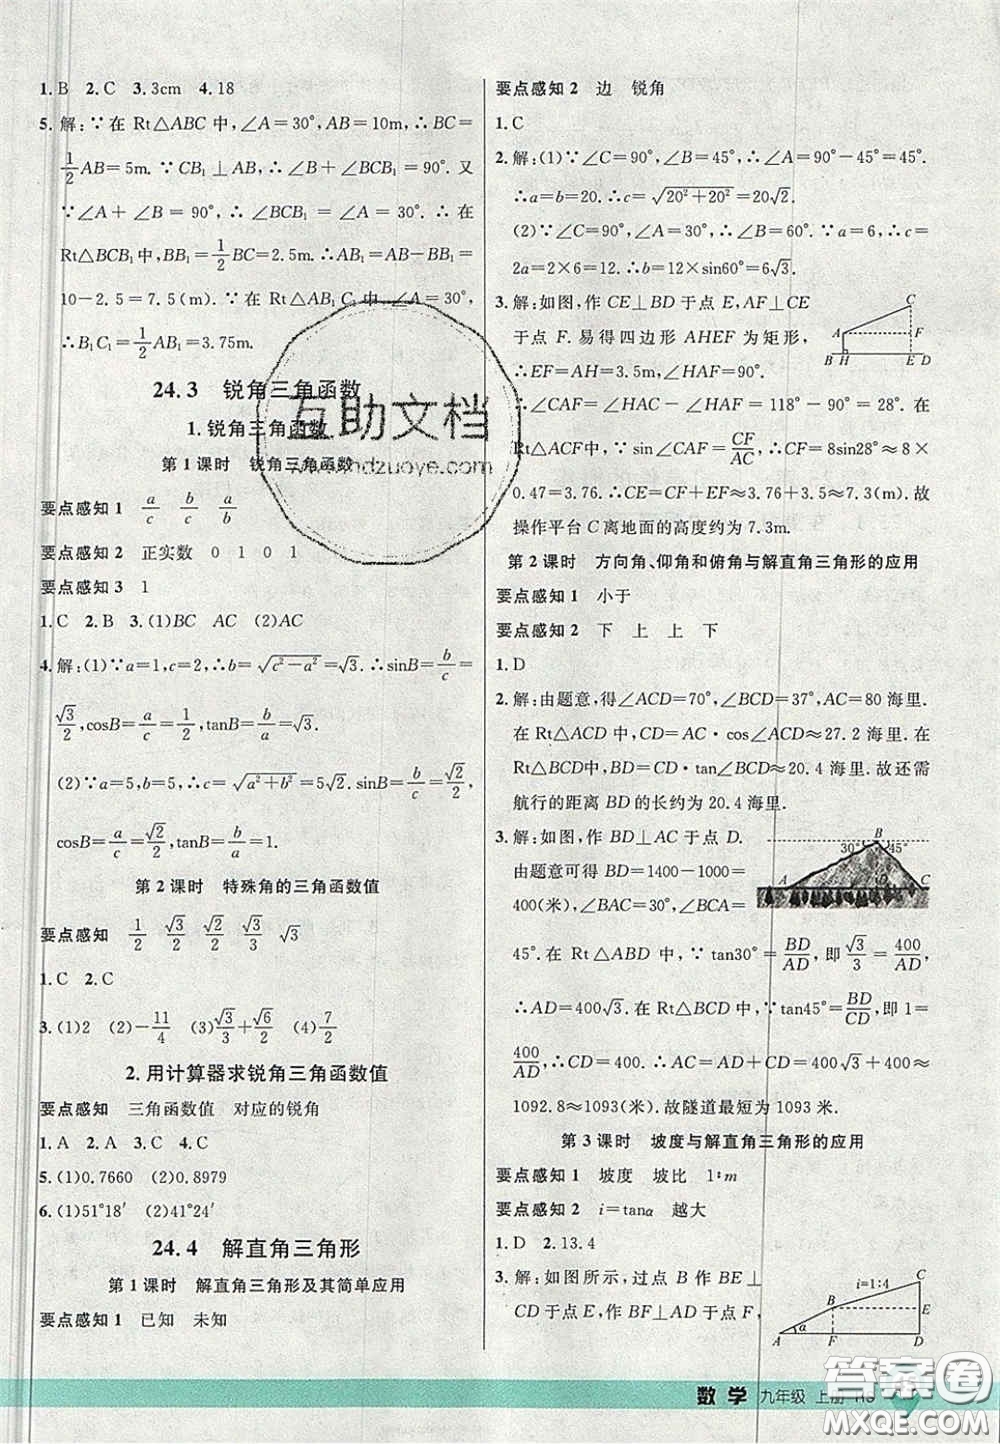 1.B 2.C 3.3cm 4.18
5.解:∵在 Rt△ABC 中,∠A=30°,AB=10m,∴BC=
1/2 AB=5m. ∵CB₁⊥AB,∴∠B+∠BCB₁=90°. 又
∵∠A+∠B=90°,∴∠BCB₁=∠A=30°. ∴在
Rt△BCB₁ 中,BB₁=1/2 BC=2.5m.∴AB₁=AB-BB₁=
10-2.5=7.5(m).∵在 Rt△AB₁C₁ 中,∠A=30°,
∴B₁C₁=1/2 AB₁=3.75m.
24.3 锐角三角函数
1.锐角三角函数
第1课时 锐角三角函数
要点感知1 a/c b/c a/b
要点感知2 正实数 0 1 0 1
要点感知3 1
1.C 2.B 3.(1)BC AC (2)AC
4.解:(1)∵a=1,c=2,∴b=√(c²-a²)=√3.∴sinB=b/c=
√3/2,cosB=a/c=1/2,tanB=b/a=√3.
(2)∵a=5,b=5,∴c=√(a²+b²)=5√2.sinB=b/c=√2/2,
cosB=a/c=√2/2,tanB=b/a=1.
第2课时 特殊角的三角函数值
要点感知 1/2 √3/2 √2/2 √3/3 √3
1.C 2.C
3.(1)2 (2)-11/4 (3)√3/3+√6/2 (4)7/2
2.用计算器求锐角三角函数值
要点感知 三角函数值 对应的锐角
1.A 2.A 3.C 4.C
5.(1)0.7660 (2)0.8979
6.(1)51°18′ (2)41°24′
24.4 解直角三角形
第1课时 解直角三角形及其简单应用
要点感知1 已知 未知
要点感知2 边 锐角
1.C
2.解:(1)∵∠C=90°,∠B=45°,∴∠A=90°-45°=45°.
∴a=b=20.∴c=√(20²+20²)=20√2.
(2)∵∠C=90°,∠A=30°,∴∠B=60°.∵a=6,∴c=
2a=2×6=12.∴b=12×sin60°=6√3.
3.解:如图,作 CE⊥BD 于点 E,AF⊥CE
于点 F.易得四边形 AHEF 为矩形,
∴EF=AH=3.4m,∠HAF=90°.
∴∠CAF=∠HAC-∠HAF=118°-90°=28°. 在
Rt△ACF 中,∵sin∠CAF=CF/AC,∴CF=8sin28°≈8×
0.47=3.76.∴CE=CF+EF≈3.76+3.5≈7.3(m). 故
操作平台 C 离地面的高度约为 7.3m.
C
A F
B H E D
第2课时 方向角、仰角和俯角与解直角三角形的应用
要点感知1 小于
要点感知2 下 上 上 下
1.D
2.解:由题意,得∠ACD=70°,∠BCD=37°,AC=80 海里.
在 Rt△ACD 中,CD=AC·cos∠ACD≈27.2 海里.在
Rt△BCD中,BD=CD·tan∠BCD≈20.4 海里.故还需
航行的距离 BD 的长约为 20.4 海里.
3.解:如图,作 BD⊥AC 于点 D.
由题意可得 BD=1400-1000=
400(米),∠BAC=30°,∠BCA=
45°. 在 Rt△ABD 中,∵tan30°=BD/AD,即√3/3=400/AD,
∴AD=400√3.在 Rt△BCD 中,∵tan45°=BD/CD,即 1=
400/AD,∴CD=400.∴AC=AD+CD=400√3+400≈
1092.8≈1093(米).故隧道最短为 1093 米.
B
30° 45°
A D C
第3课时 坡度与解直角三角形的应用
要点感知1 坡度 坡比 1∶m
要点感知2 i=tanα 越大
1.D 2.13.4
3.解:如图所示,过点 B 作 BE⊥
CD 于点 E,作 BF⊥AD 于点 F,
i=1:4 C
B E
A α F D
数学 九年级 上册
互助文档
答案圈
MXQE.COM